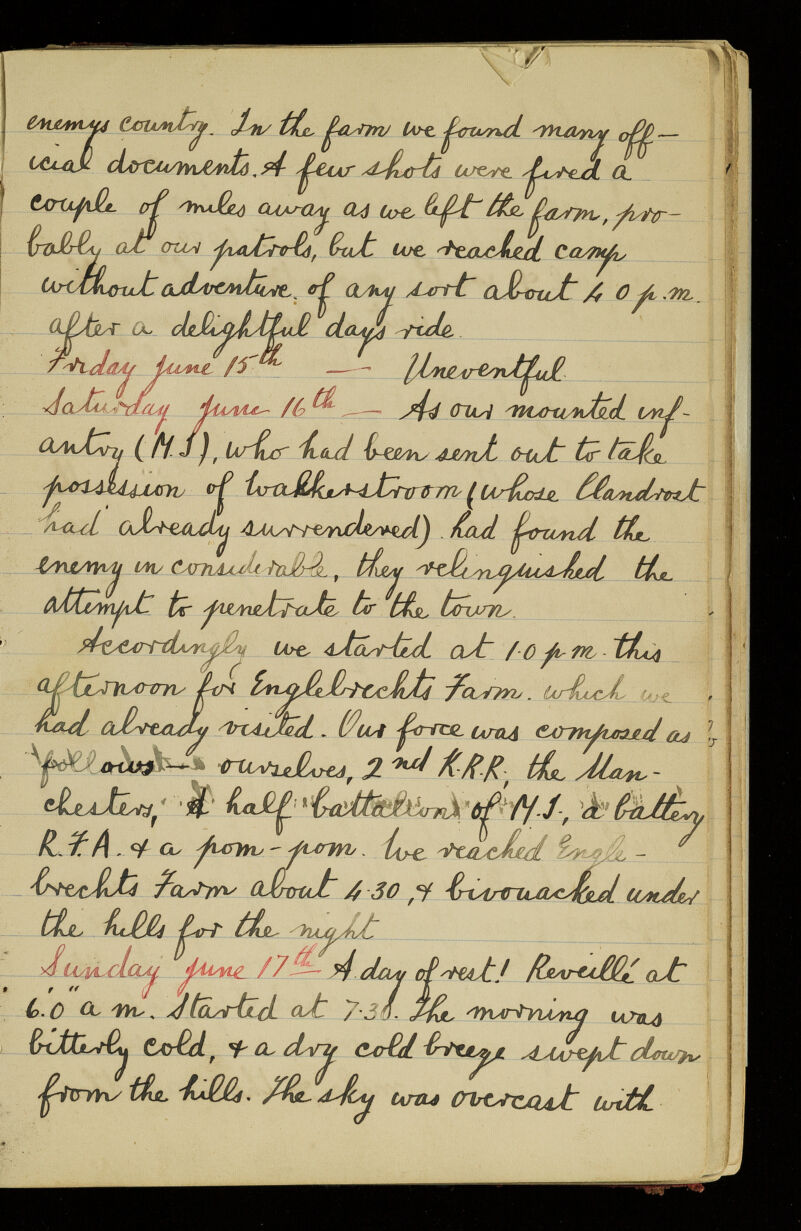 enemys country. In the farm we found many off-
icial documents. A few shots were fired a
couple of miles away as we left the farm, pro-
bably at our patrols, but we reached camp
without adventure of any sort about 4 0 p.m.
after a delightful days ride
Friday June 15th — Uneventful
Saturday June 16th — As our mounted inf-
antry (M.I), who had been sent out to take
possession of Wakkerstroom (whose Llandrost
had already surrendered) had found the
enemy in considerable, they relinquished the
attempt to penetrate to the town.
Accordingly we started at 1.0 p.m. this
afternoon for Englebrechts Farm. which we
had already visited. Our force was composed as
follows — ourselves, 2nd K.R.R, the Man-
chesters, A half battalion of M.I., a battery
R.F.A. & a pom-pom. We reached Engle-
brechts Farm about 4.30, & bivouacked under
the hills for the night
Sunday June 17th A day of rest! Reveillé at
6.'0" a m. Started at 7.30. The morning was
bitterly cold, & a dry cold breeze swept down
from the hills. The sky was overcast with